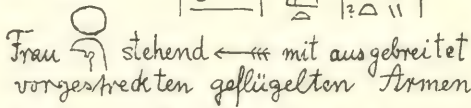 Frau stehend mit ausgebreitet
vorgestreckten geflügelten Armen